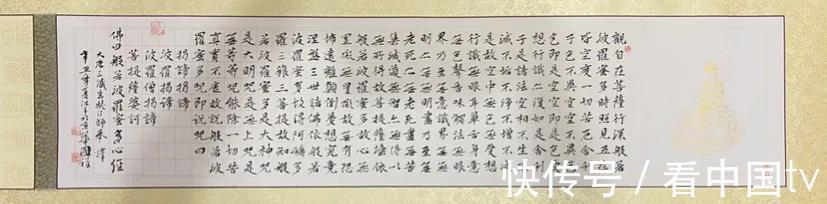 觀自在菩薩行深般若
波羅蜜多時照見五蘊
皆空度一切苦厄舍利
子色不異空空不異
色色即是空空即是色受
想行識亦復如是舍利
子是諸法空相不生不
滅不垢不淨不增不減
是故空中無色無受想
行識無眼耳鼻舌身意
無色聲香味觸法無眼
界乃至無意識界無無
明亦無無明盡乃至無
老死亦無老死盡無苦
集滅道無智亦無得以
無所得故菩提薩埵依
般若波羅蜜多故心無
罣礙無罣礙故無有恐
怖遠離顛倒夢想究竟
涅盤三世諸佛依般若
波羅蜜多故得阿耨多
羅三藐三菩提故知般
若波羅蜜多是大神咒
是大明咒是無上咒是
無等等咒能除一切苦
真實不虛故說般若波
羅蜜多咒即說咒曰
揭諦揭諦
波羅揭諦
波羅僧揭諦
菩提薩婆訶
佛曰般若波羅蜜多心經
大唐三藏玄奘法師奉譯
辛丑年夏
快传号/看中国tv